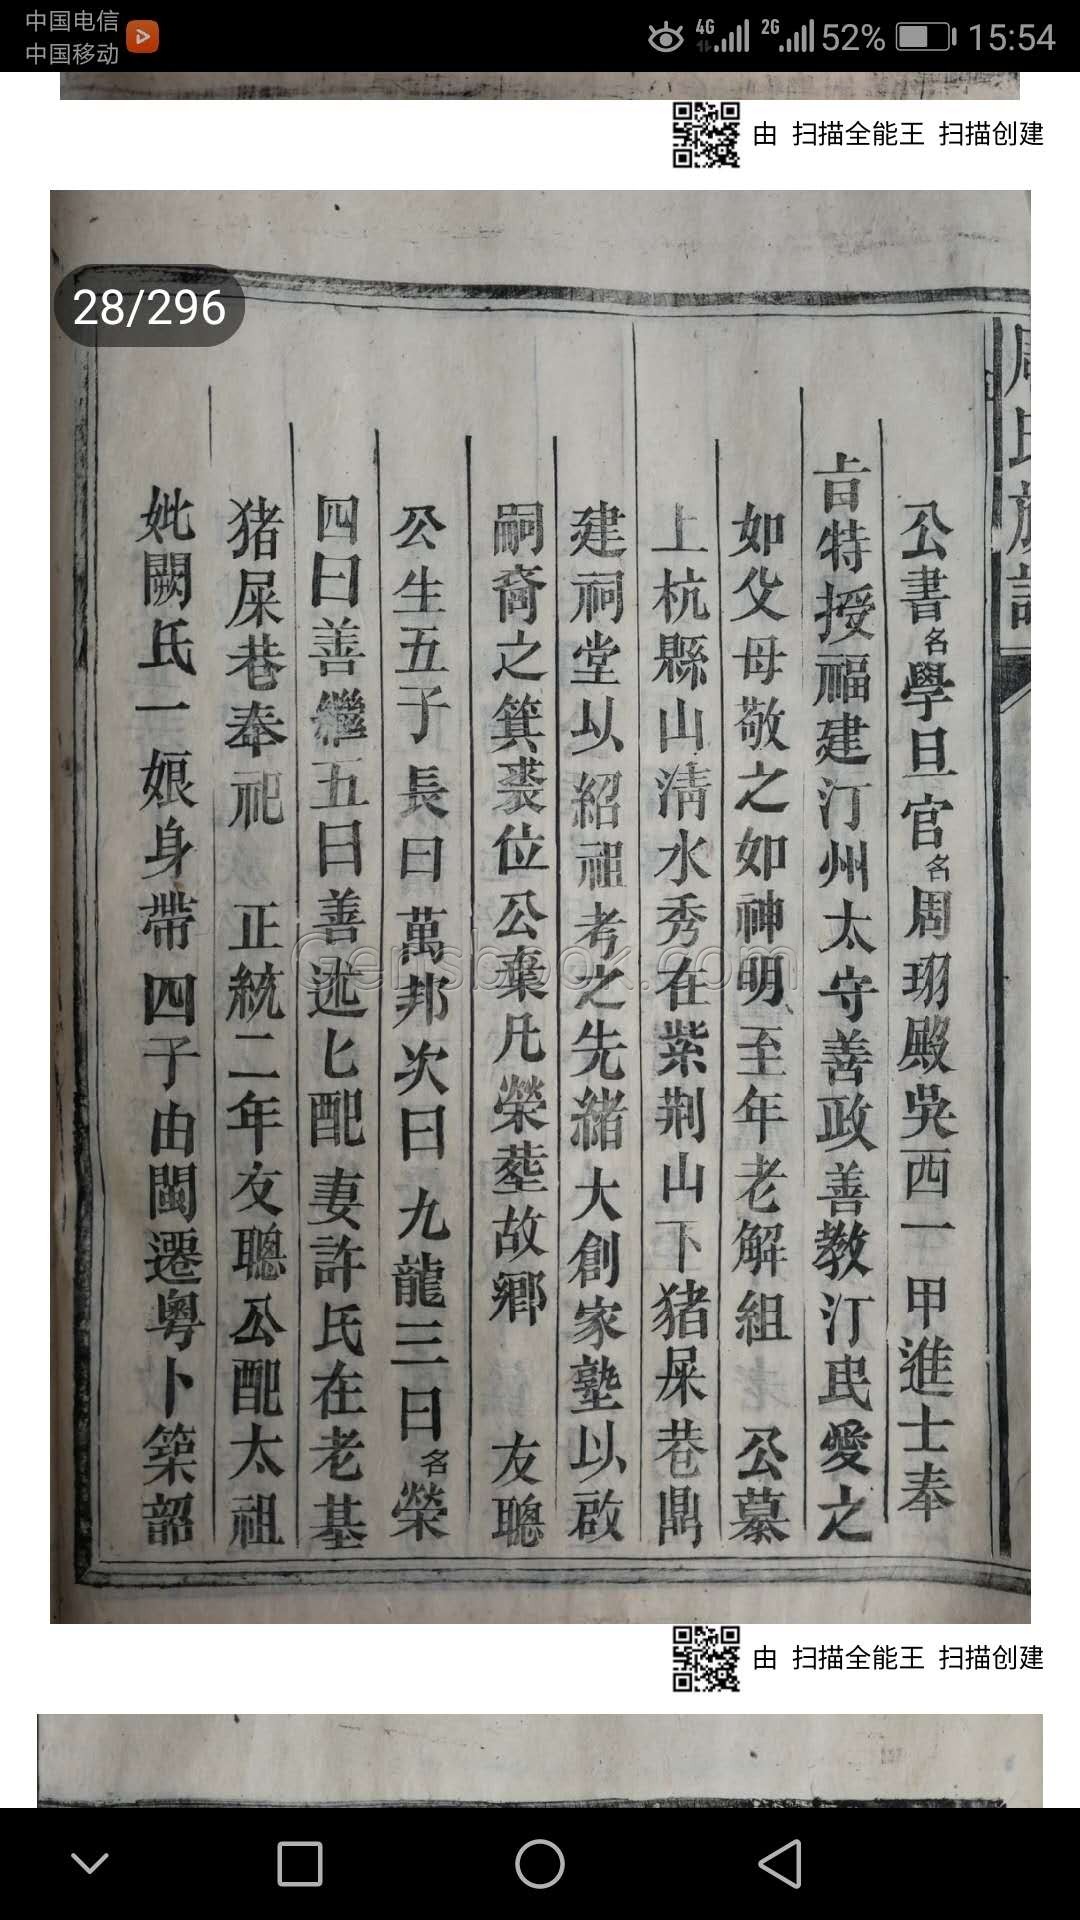 中国电信
中国移动
4G
2G
52%
15:54
由 扫描全能王 扫描创建
28/296
周氏族譜
公書名學旦官名周珝殿吳西一甲進士奉
旨特授福建汀州太守善政善教汀民愛之
如父母敬之如神明至年老解組 公墓
上杭縣山清水秀在紫荆山下猪屎巷鼎
建祠堂以紹祖考之先緒大創家塾以啟
嗣裔之箕裘位公棄凡榮塟故鄉 友聰
公生五子長曰萬邦次曰九龍三曰名榮
四曰善繼五曰善述匕配妻許氏在老基
猪屎巷奉祀 正統二年友聰公配太祖
妣闕氏一娘身帶四子由閩遷粵卜築韶
Gensbook.com
由 扫描全能王 扫描创建